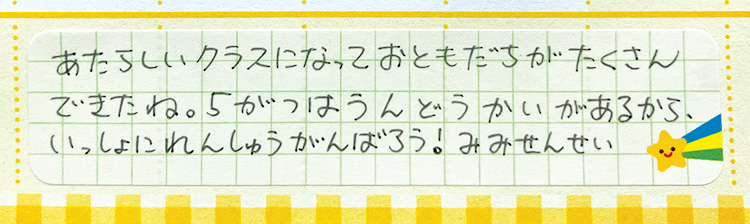 あたらしいクラスになっておともだちがたくさん
できたね。5がつはうんどうかいがあるから、
いっしょにれんしゅうがんばろう!みみせんせい